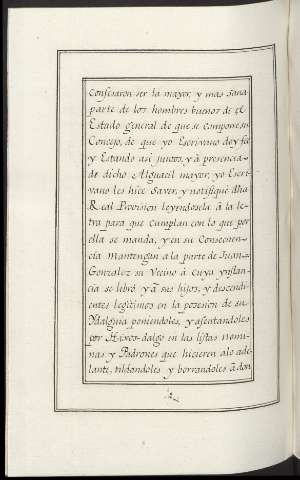 Confesaron ser la mayor, y mas sana
parte de los hombres buenos de el
Estado general de que se compone su
Concejo, de que yo Escrivano doy fee
y Estando asi juntos, y à presencia
de dicho Alguacil mayor, yo Escri-
vano les hice Saver, y notifiquè dha
Real Provision leyendosela à la le-
tra para que Cumplan con lo que por
ella se manda, y en su Consecuen-
cia Mantengan a la parte de Juan
Gonzalez su Vecino à cuya ynstan-
cia se librò y à sus hijos, y descendi-
entes legitimos en la posesion de su
Ydalguia poniendoles, y asentandoles
por Hixos-dalgo en las listas nomi-
nas y Padrones que hicieren alo ade-
lante, tildandoles y borrandoles à don